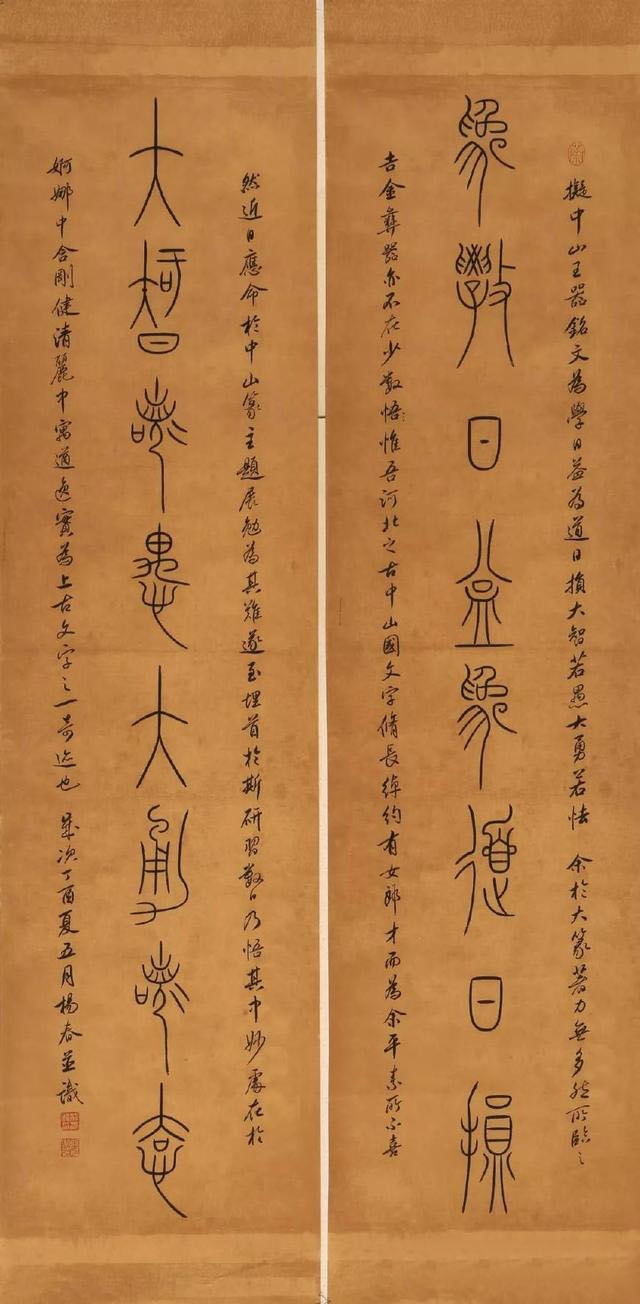 擬中山王器銘文為學日益為道日損大智若愚大勇若怯 余於大篆著力無多然所臨之
為學日益為道日損
吉金彝器亦不在少數悟惟吾河北之古中山國文字脩長綽約有女郎才而為余平素所不喜
然近日應命於中山篆主題展勉為其難遂至埋首於斯研習數日乃悟其中妙處在於
大智若愚大勇若怯
婀娜中含剛健清麗中寓遒逸實為上古文字之一奇迹也 歲次丁酉夏五月楊春並識